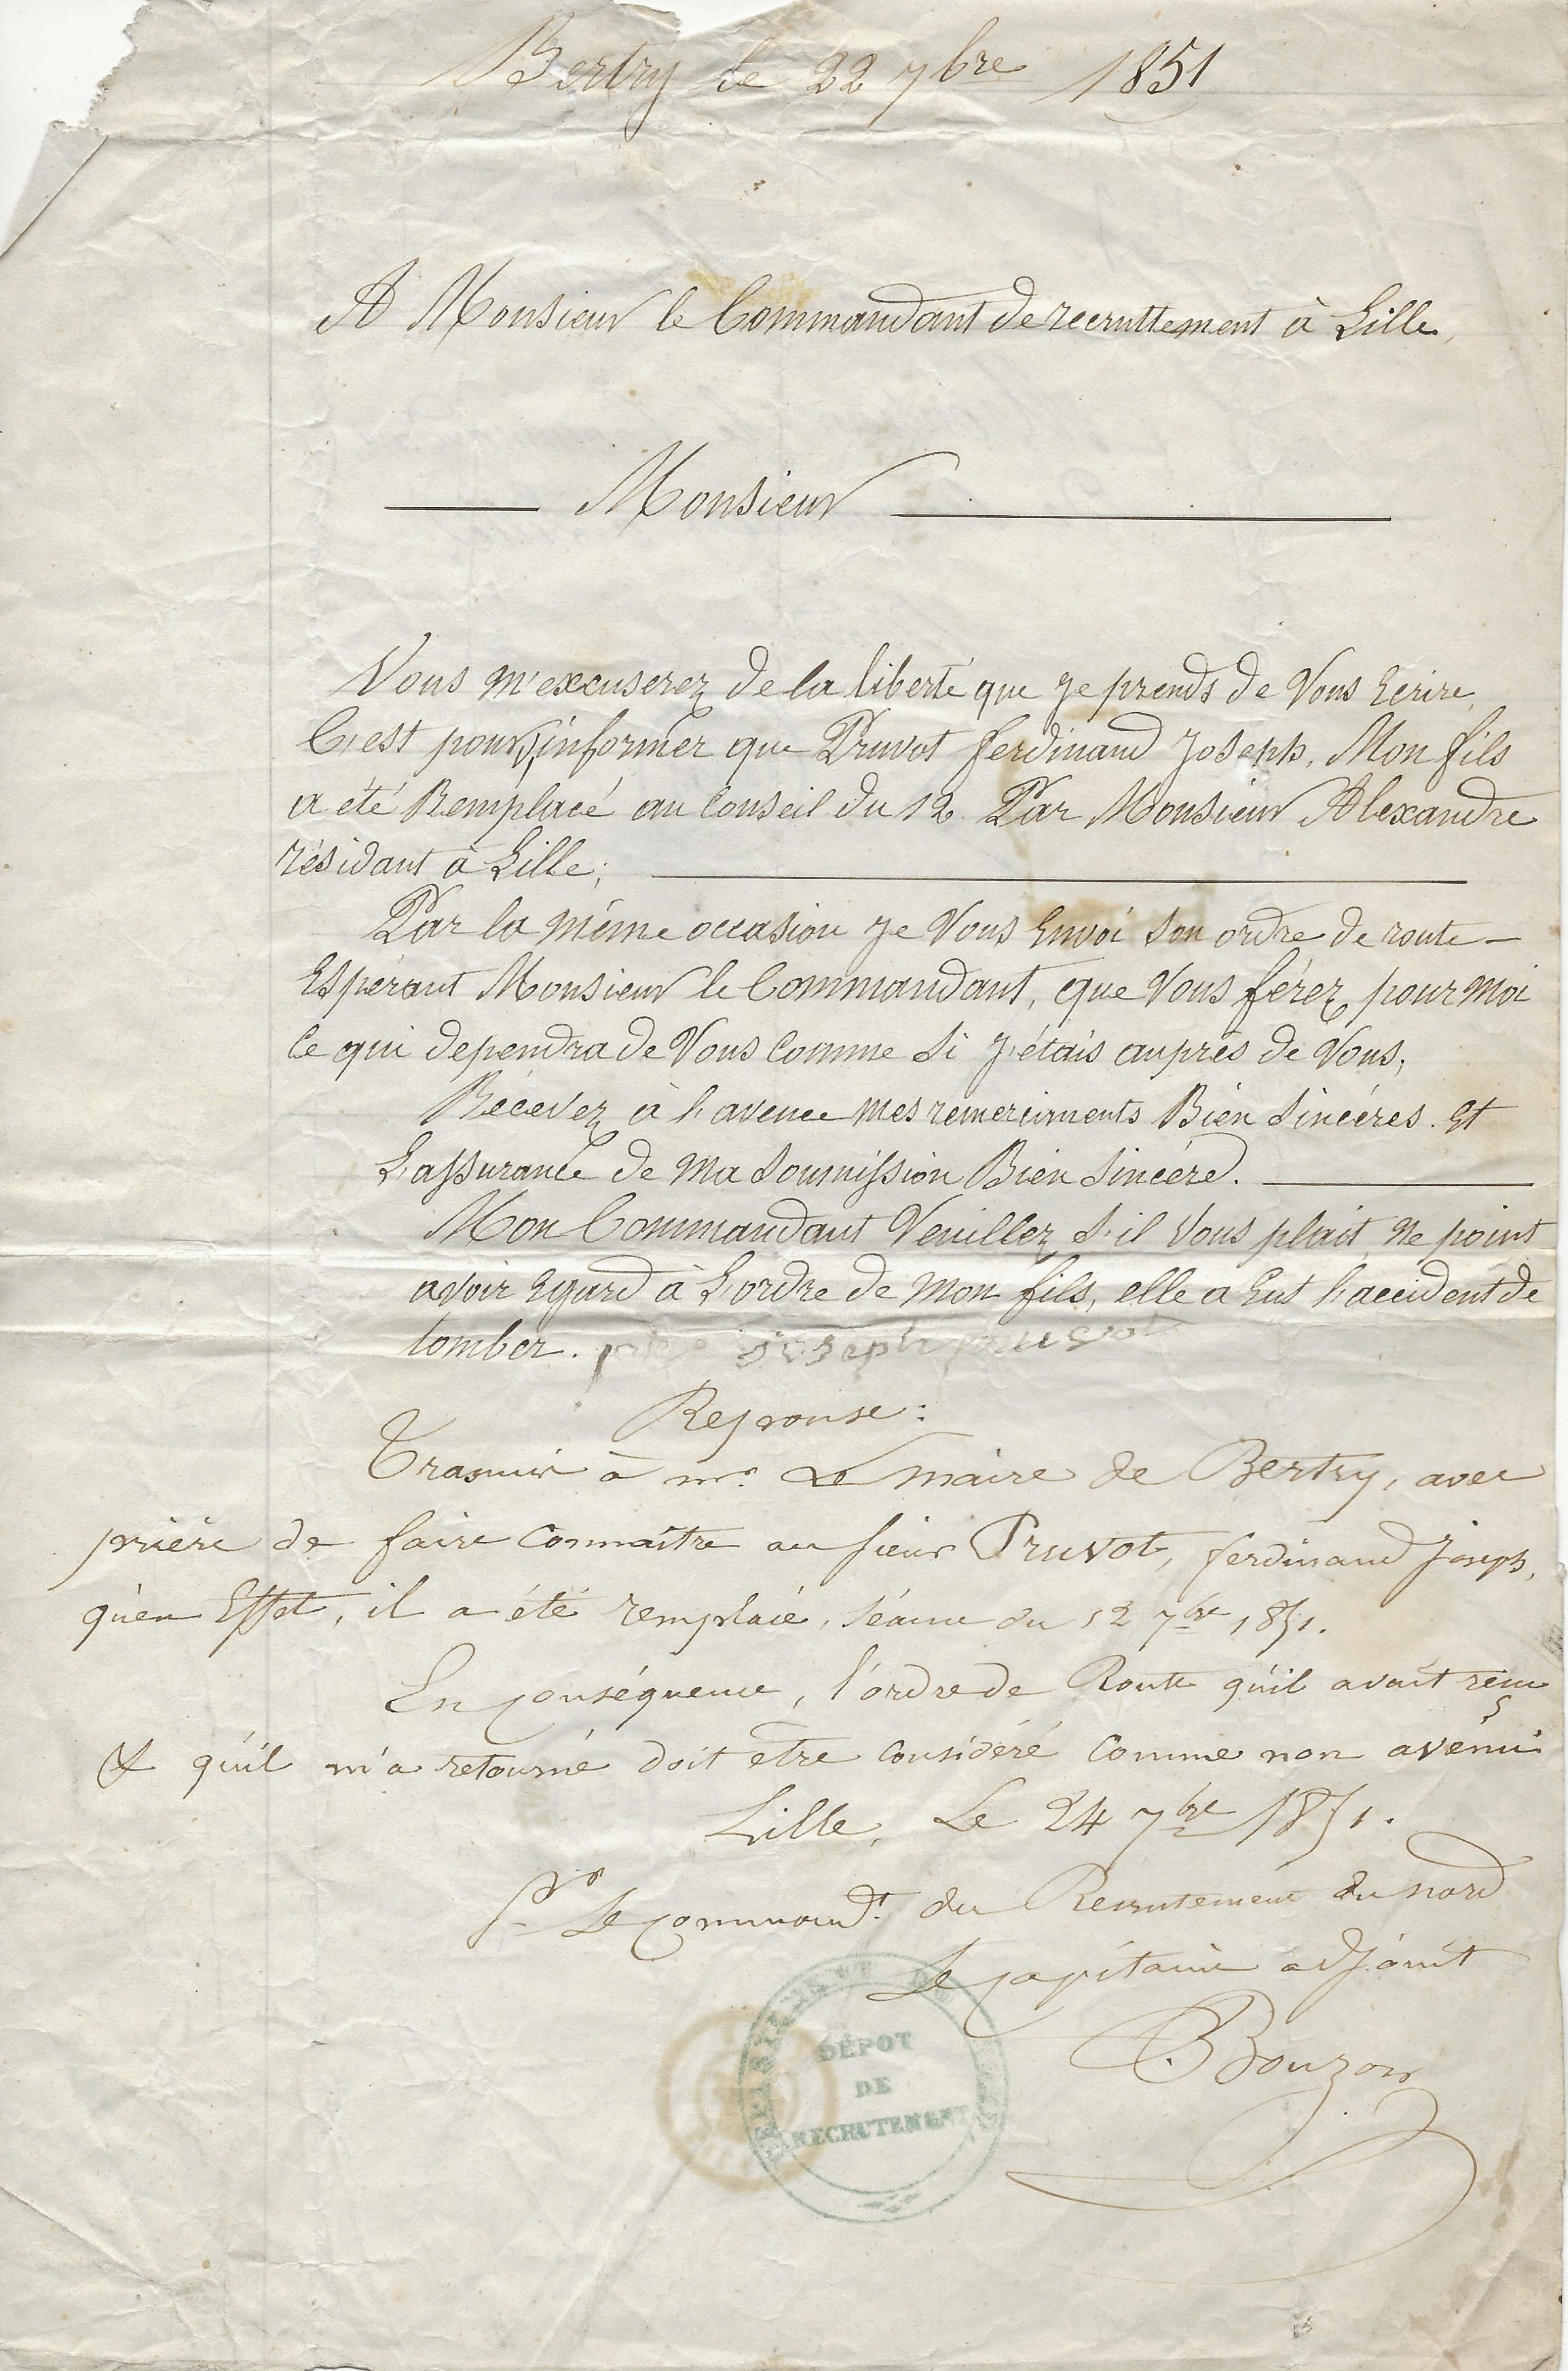 Bertry le 22 7bre 1851
A Monsieur le Commandant de recruttement à Lille,
Monsieur
Vous m'excuserez de la liberté que je prends de Vous Ecrire,
C'est pour informer que Pruvot ferdinand Joseph, Mon fils
a été Remplacé au Conseil du 12 Par Monsieur Alexandre
résidant à Lille;
Par la même occasion je Vous Envoi son ordre de route –
Espérant Monsieur le Commandant, que Vous férez pour moi
Ce qui dependra de Vous Comme Si j'étais auprès de Vous,
Récevez à l'avence mes remerciments Bien Sincéres. Et
L'assurance de Ma Soumission Bien Sincére.
Mon Commandant Veuillez S'il Vous plait ne point
avoir Egard à L'ordre de mon fils, elle a Eut l'accident de
tomber. joseph pruvot
Reponse:
Trasmis à mr. Le maire de Bertry, avec
prière de faire Connaître au sieur Pruvot, ferdinand Joseph,
qu'en Effet, il a été remplacé, séance du 12 7bre 1851.
En conséquence, l'ordre de Route qu'il avait reçu
& qu'il m'a retourné doit être considéré comme non avénu
Lille, Le 24 7bre 1851.
Pr Le Command.t du Recrutement du nord
Le capitaine adjoint
Bouzon
DÉPOT
DE
RECRUTEMENT